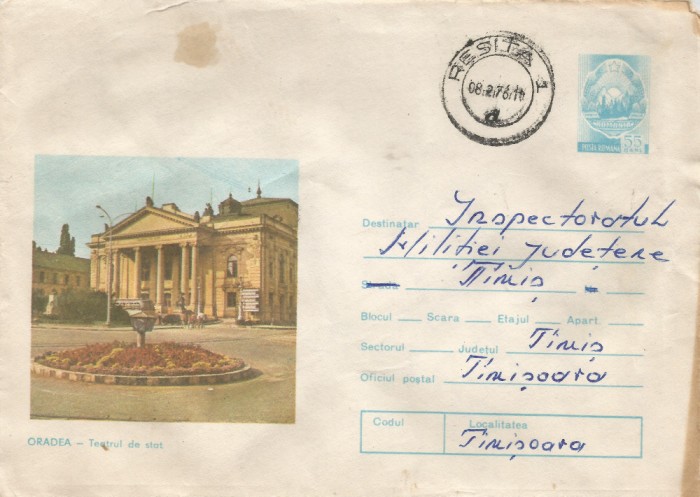 REȘIȚA 1
POSTA ROMANA 55 BANI
Destinatar Inspectoratul
Miliției Județene
Strada Timiș
Blocul Scara Etajul Apart.
Sectorul Județul Timiș
Oficiul poștal Timișoara
Codul Localitatea
Timișoara
ORADEA – Teatrul de stat